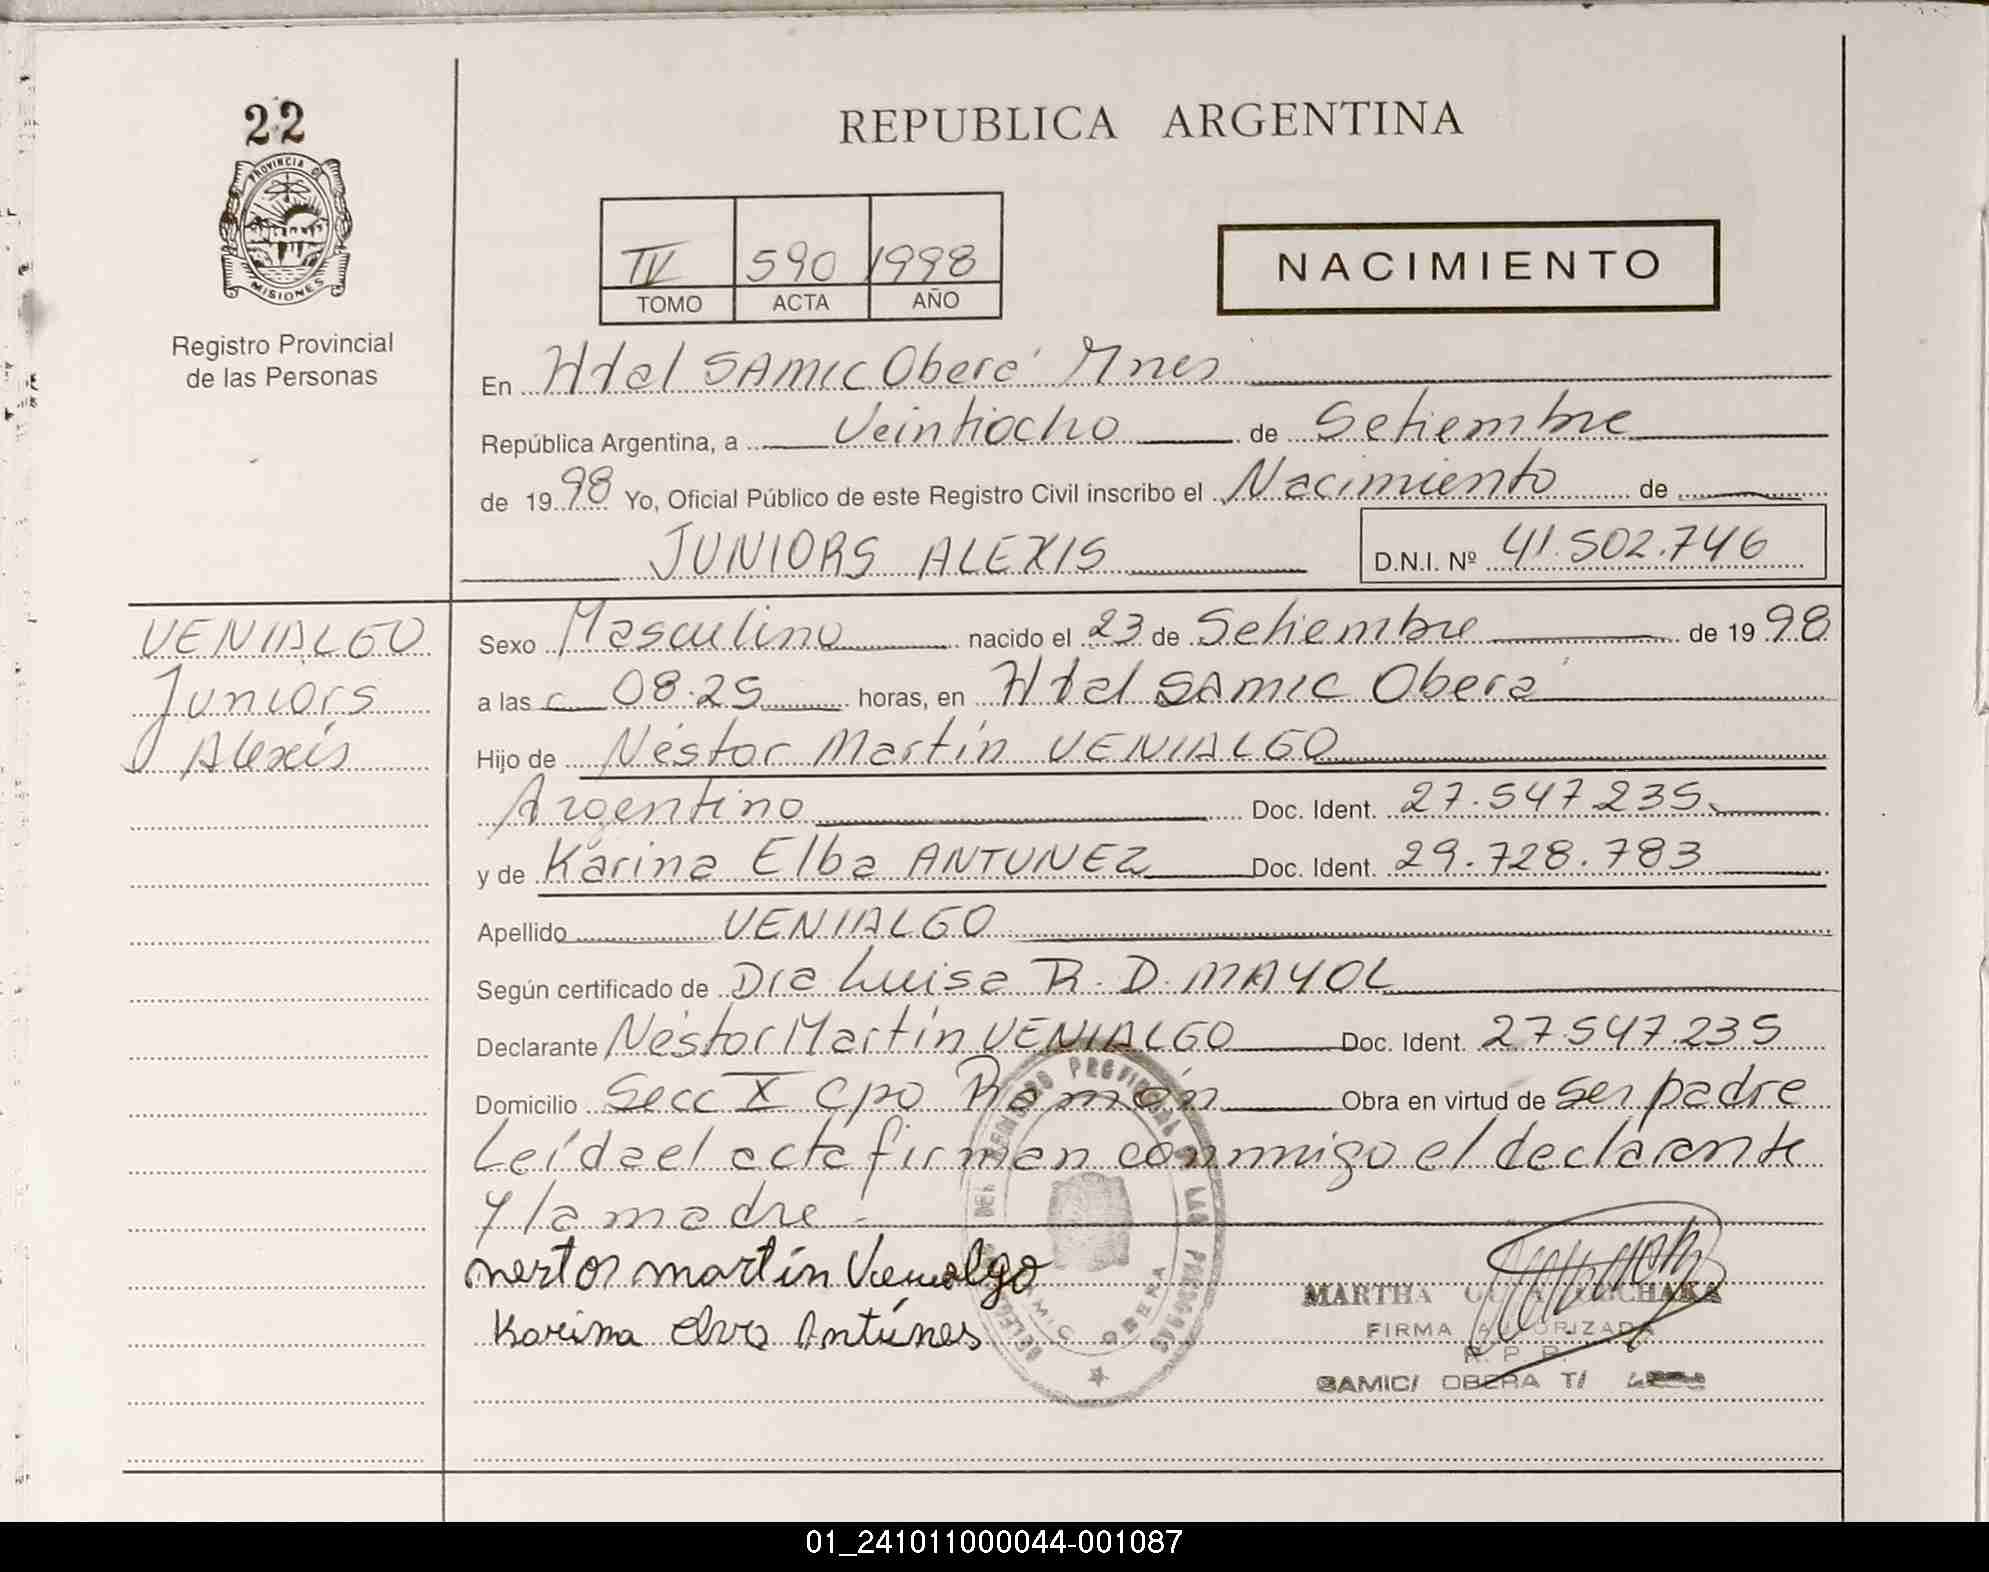 22
PROVINCIA D
MISIONES
Registro Provincial
de las Personas
REPUBLICA ARGENTINA
IV 590 1998
TOMO ACTA AÑO
NACIMIENTO
En Htal SAMIC Oberá Mnes
República Argentina, a Veintiocho de Setiembre
de 1998 Yo, Oficial Público de este Registro Civil inscribo el Nacimiento de
JUNIORS ALEXIS D.N.I. Nº 41.502.746
VENIALGO
Juniors
Alexis
Sexo Masculino nacido el 23 de Setiembre de 1998
a las 08.25 horas, en Htal SAMIC Oberá
Hijo de Néstor Martín VENIALGO
Argentino Doc. Ident. 27.547.235
y de Karina Elba ANTUNEZ Doc. Ident. 29.728.783
Apellido VENIALGO
Según certificado de Dra Luisa R. D. MAYOL
Declarante Néstor Martín VENIALGO Doc. Ident. 27.547.235
Domicilio Secc X Cpo Ramón Obra en virtud de ser padre
Leída el acta firman conmmigo el declarante
y la madre -
nestor martín Venialgo
Karina elva Antúnes
OBERA
MARTHA
FIRMA AUTORIZADA
R. P. P.
SAMIC/ OBERA T/
01_241011000044-001087